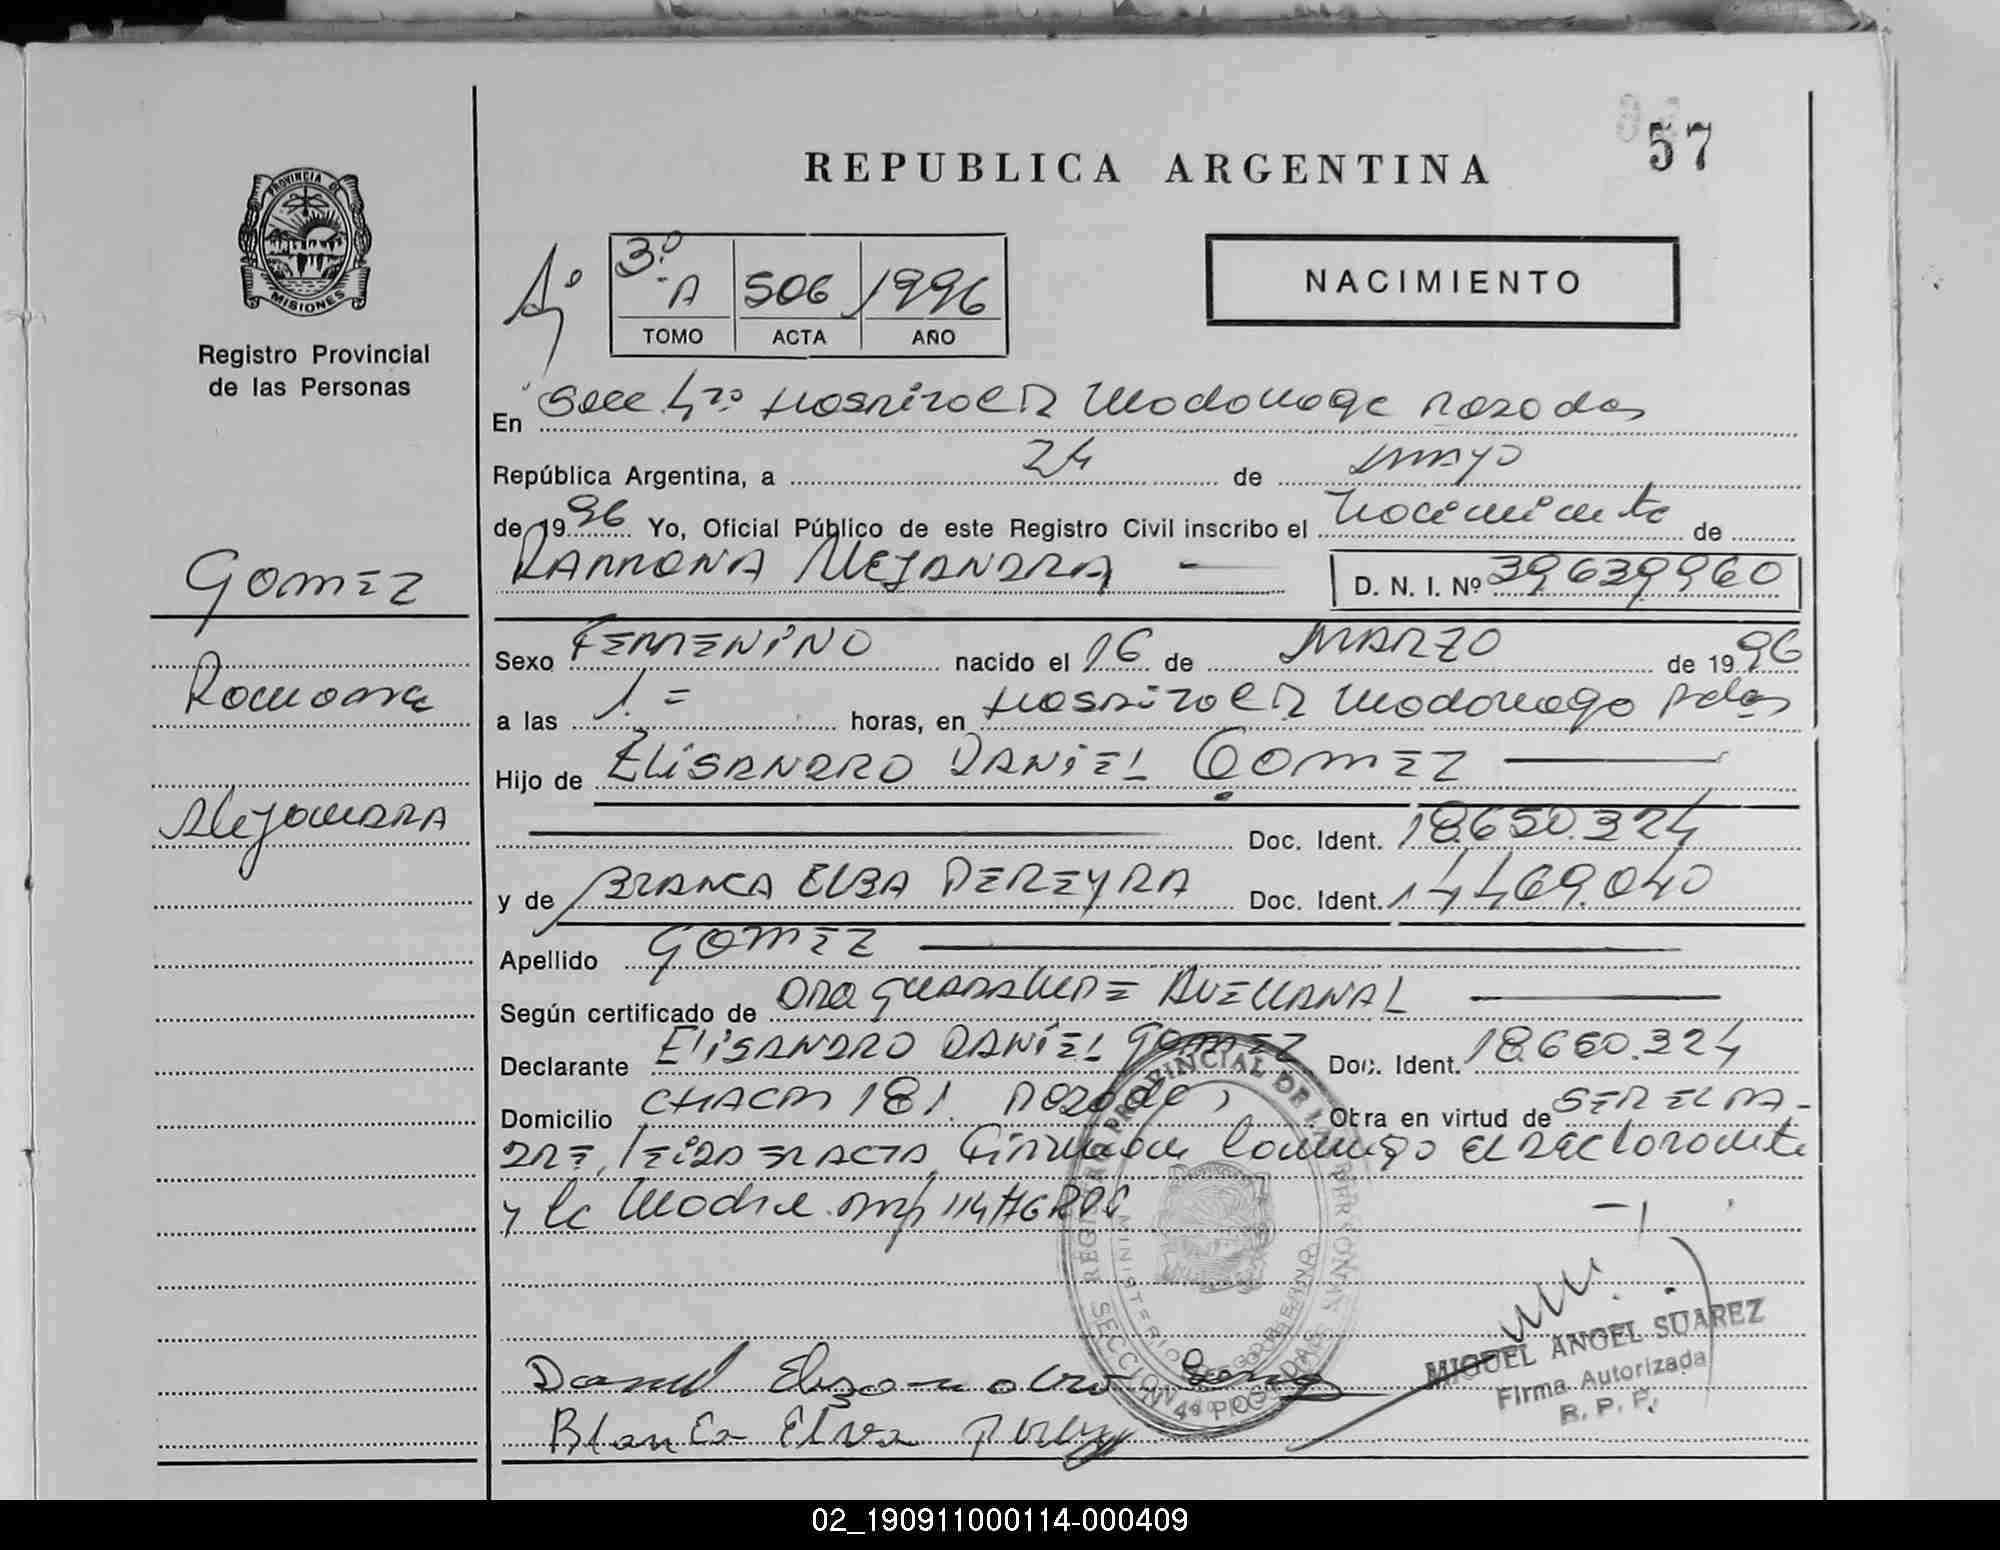 57
REPUBLICA ARGENTINA
PROVINCIA D
MISIONES
Registro Provincial
de las Personas
3º A 506 1996
TOMO ACTA AÑO
NACIMIENTO
En Secc 4ta Hospital R Madariaga Posadas
República Argentina, a 24 de mayo
de 1996 Yo, Oficial Público de este Registro Civil inscribo el nacimiento de
RAMONA ALEJANDRA D. N. I. Nº 39.639.960
GOMEZ
Ramona
Alejandra
Sexo FEMENINO nacido el 16 de MARZO de 1996
a las 1.= horas, en Hospital R Madariaga Pdas
Hijo de ELISANDRO DANIEL GOMEZ
Doc. Ident. 18.650.324
y de BLANCA ELBA PEREYRA Doc. Ident. 14.469.040
Apellido GOMEZ
Según certificado de Dra GUADALUPE AVELLANAL
Declarante ELISANDRO DANIEL GOMEZ Doc. Ident. 18.650.324
Domicilio CHACRA 181. Posadas Obra en virtud de SER EL PA-
DRE, LEIDA EL ACTA, firman conmigo el declarante
y la Madre
REGISTRO PROVINCIAL DE LAS PERSONAS
MINISTERIO DE GOBIERNO
SECCION 4ª POSADAS
MIGUEL ANGEL SUAREZ
Firma Autorizada
R. P. P.
Daniel Elisandro Gomez
Blanca Elva
02_190911000114-000409